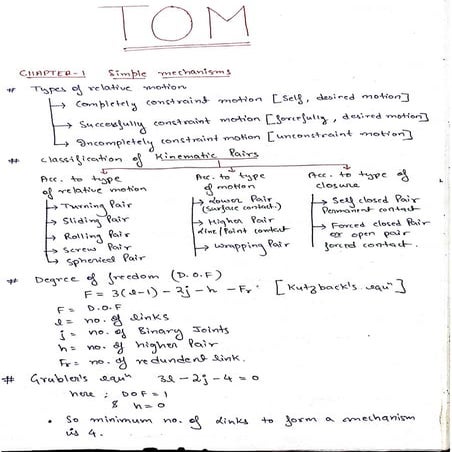 TOM
CHAPTER-1 Simple mechanisms
# Types of relative motion
→ Completely constraint motion [Self, desired motion]
→ Successfully constraint motion [forcefully, desired motion]
→ Incompletely constraint motion [unconstraint motion]
# Classification of Kinematic Pairs
Acc. to type of relative motion
→ Turning Pair
→ Sliding Pair
→ Rolling Pair
→ Screw Pair
→ Spherical Pair
Acc. to type of motion
→ Lower Pair
(Surface contact.)
→ Higher Pair
Line/Point contact
→ Wrapping Pair
Acc. to type of closure
→ Self closed Pair
Permanent contact
→ Forced closed Pair
or open pair
forced contact.
# Degree of freedom (D.O.F)
F = 3(l-1) - 2j - h - Fr. [Kutzback's equⁿ]
F = D.O.F
l = no. of links
j = no. of Binary Joints
h = no. of higher Pair
Fr = no. of redundent link.
# Grubler's equⁿ 3l - 2j - 4 = 0
here ; DOF = 1
& h = 0
• So minimum no. of links to form a mechanism
is 4.